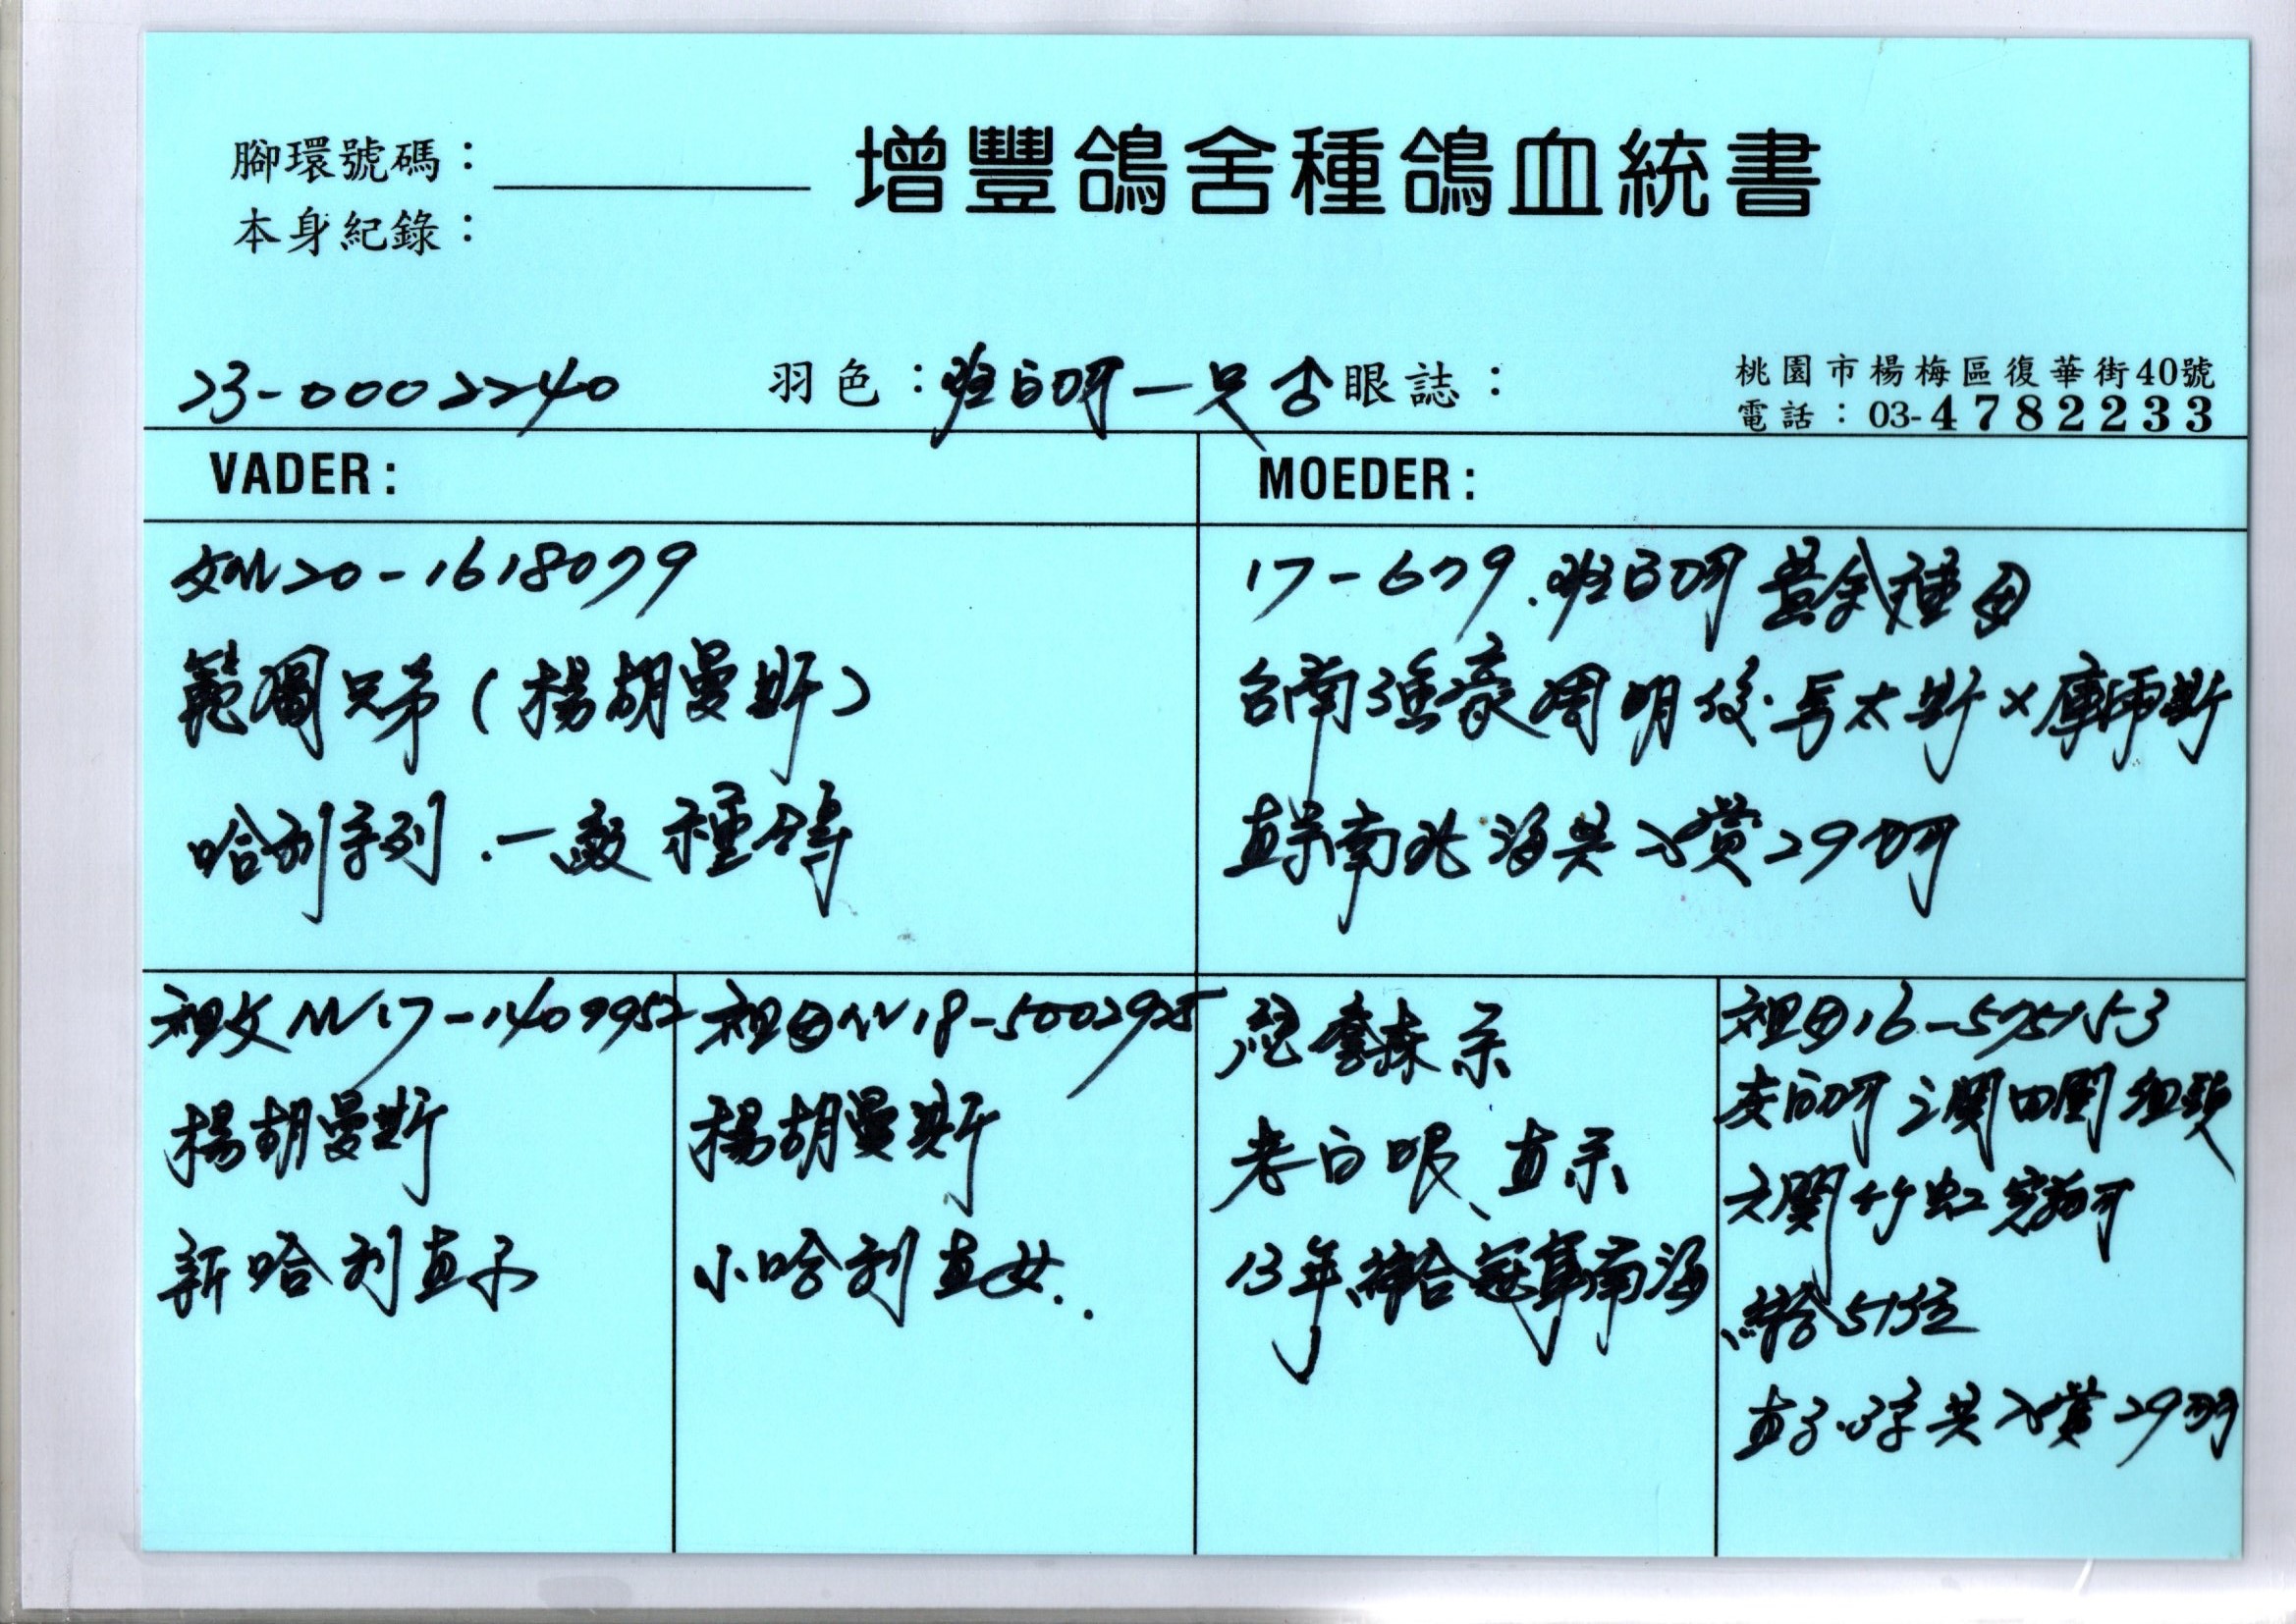 增豐鴿舍種鴿血統書
腳環號碼：
本身紀錄：
23-0002240
羽色：斑白羽一只 眼誌：
桃園市楊梅區復華街40號
電話：03-4782233
VADER:
MOEDER:
父NL20-1618079
範獨兄弟（楊胡曼斯）
哈利系列．一級種鴿
17-679．斑白羽 黃金種母
台南強豪周明俊．馬太斯×庫佛斯
直系南北海共入賞29羽
祖父NL17-1409952
楊胡曼斯
新哈利直子
祖母NL18-5002925
楊胡曼斯
小哈利直女..
詹森系
老白眼、直系
13年綜合冠軍南海
祖母16-575153
灰白羽 三關四關組頭
六關竹
綜合51位
直子 共入賞29羽